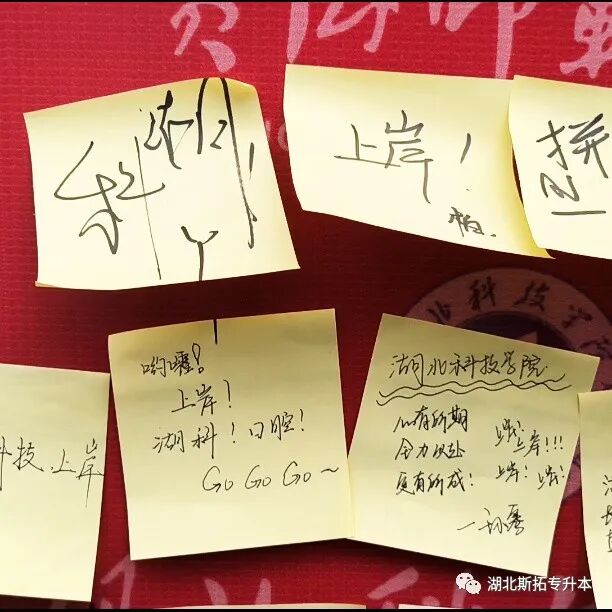 湖
科
上岸!
拼
哟嚯!
上岸!
湖科!口腔!
GO GO GO~
湖北科技学院
心有所期
全力以赴
更有所成!
上岸!
上岸!!!
上岸! 上岸!
科技,上岸
北科技学
湖北斯拓专升本